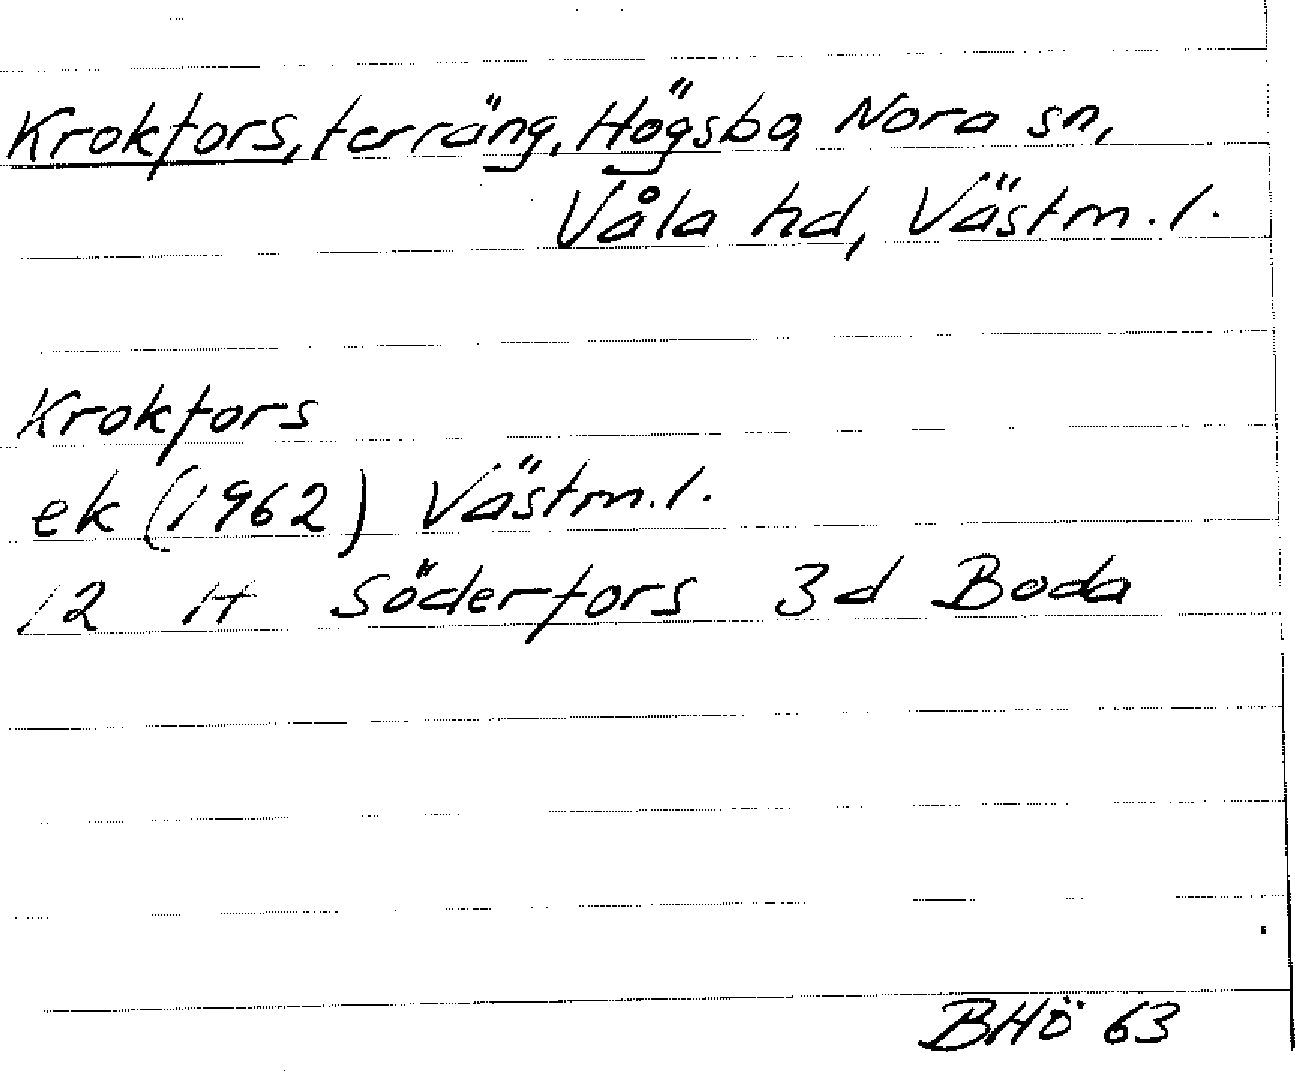 Krokfors, terräng, Högsbo, Nora sn,
Våla hd, Västm. l.
Krokfors
ek (1962) Västm. l.
12 H Söderfors 3d Boda
BHÖ 63